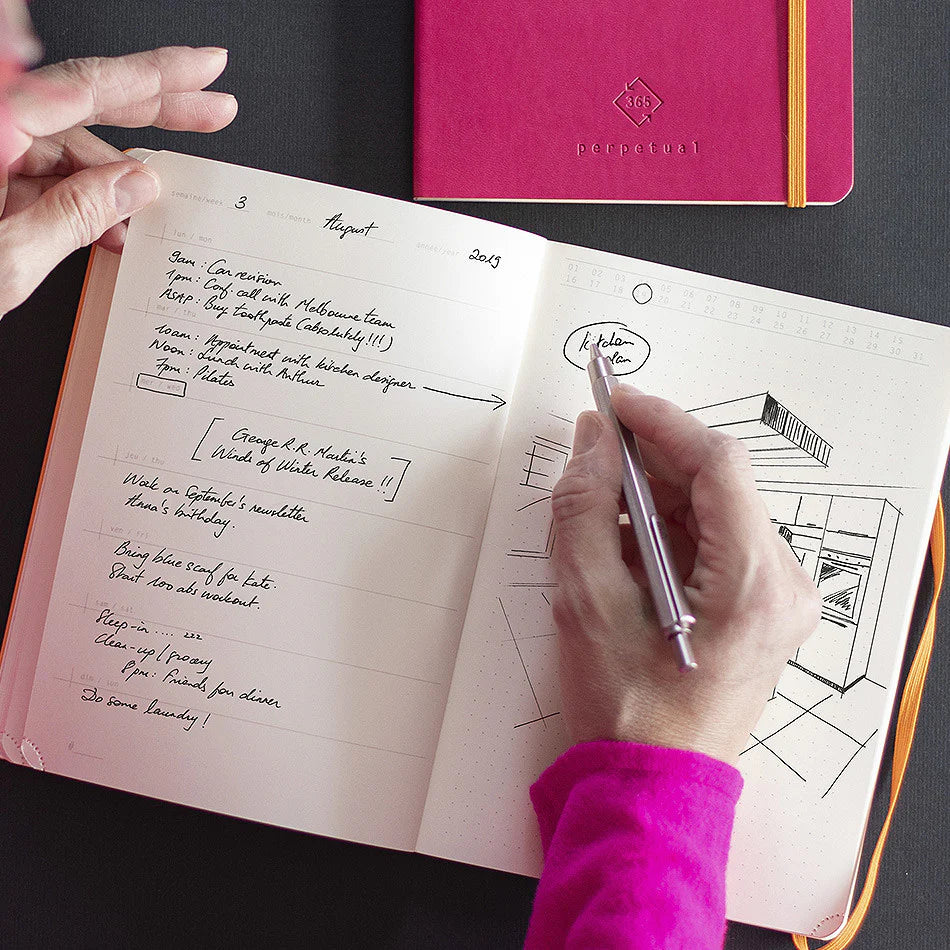 365
perpetual
semaine/week 3 mois/month August année/year 2019
lun / mon
9am : Car revision
1pm : Conf. call with Melbourne team
ASAP : Buy toothpaste (absolutely!!!)
10am : Appointment with kitchen designer
Noon : Lunch with Arthur
7pm : Pilates
mer / wed
George R.R. Martin's
Winds of Winter Release !!
jeu / thu
Work on September's newsletter
Anna's birthday.
ven / fri
Bring blue scarf for Kate.
Start 100 abs workout.
sam / sat
Sleep-in .... zzz
Clean-up / grocery
8pm : Friends for dinner
dim / sun
Do some laundry !
01 02 03 05 06 07 08 09 10 11 12 13 14 15
16 17 18 20 21 22 23 24 25 26 27 28 29 30 31
Kitchen